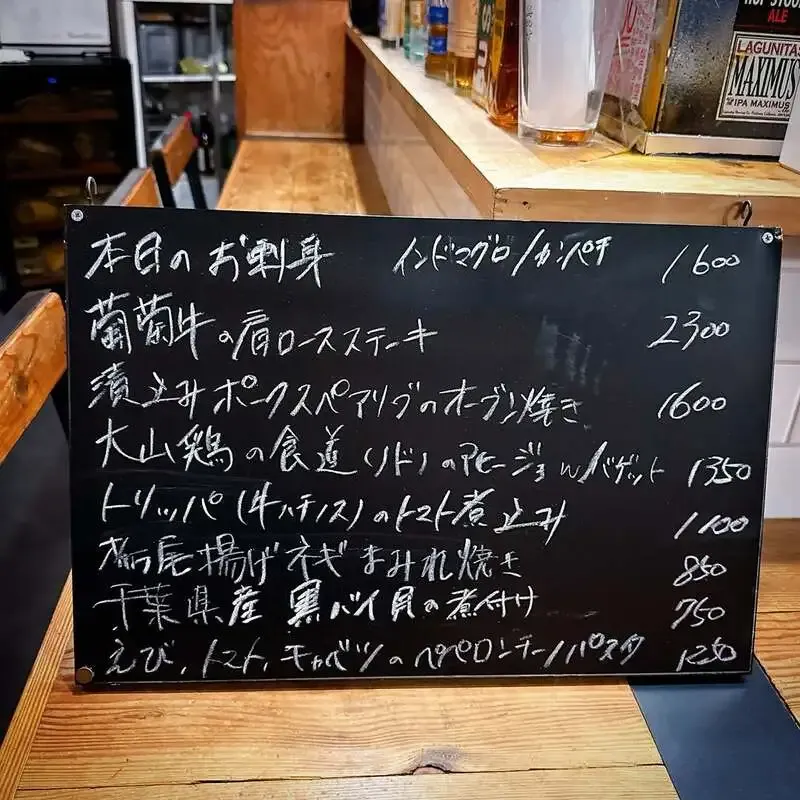 HOP STOOPID
ALE
LAGUNITAS
MAXIMUS
IPA MAXIMUS
本日のお刺身 インドマグロ/カンパチ 1600
葡萄牛の肩ロースステーキ 2300
漬込みポークスペアリブのオーブン焼き 1600
大山鶏の食道(ノド)のアヒージョw/バゲット 1350
トリッパ(牛ハチノス)のトマト煮込み 1100
栃尾揚げネギまみれ焼き 850
千葉県産 黒バイ貝の煮付け 750
えび、トマト、キャベツのペペロンチーノパスタ 1250